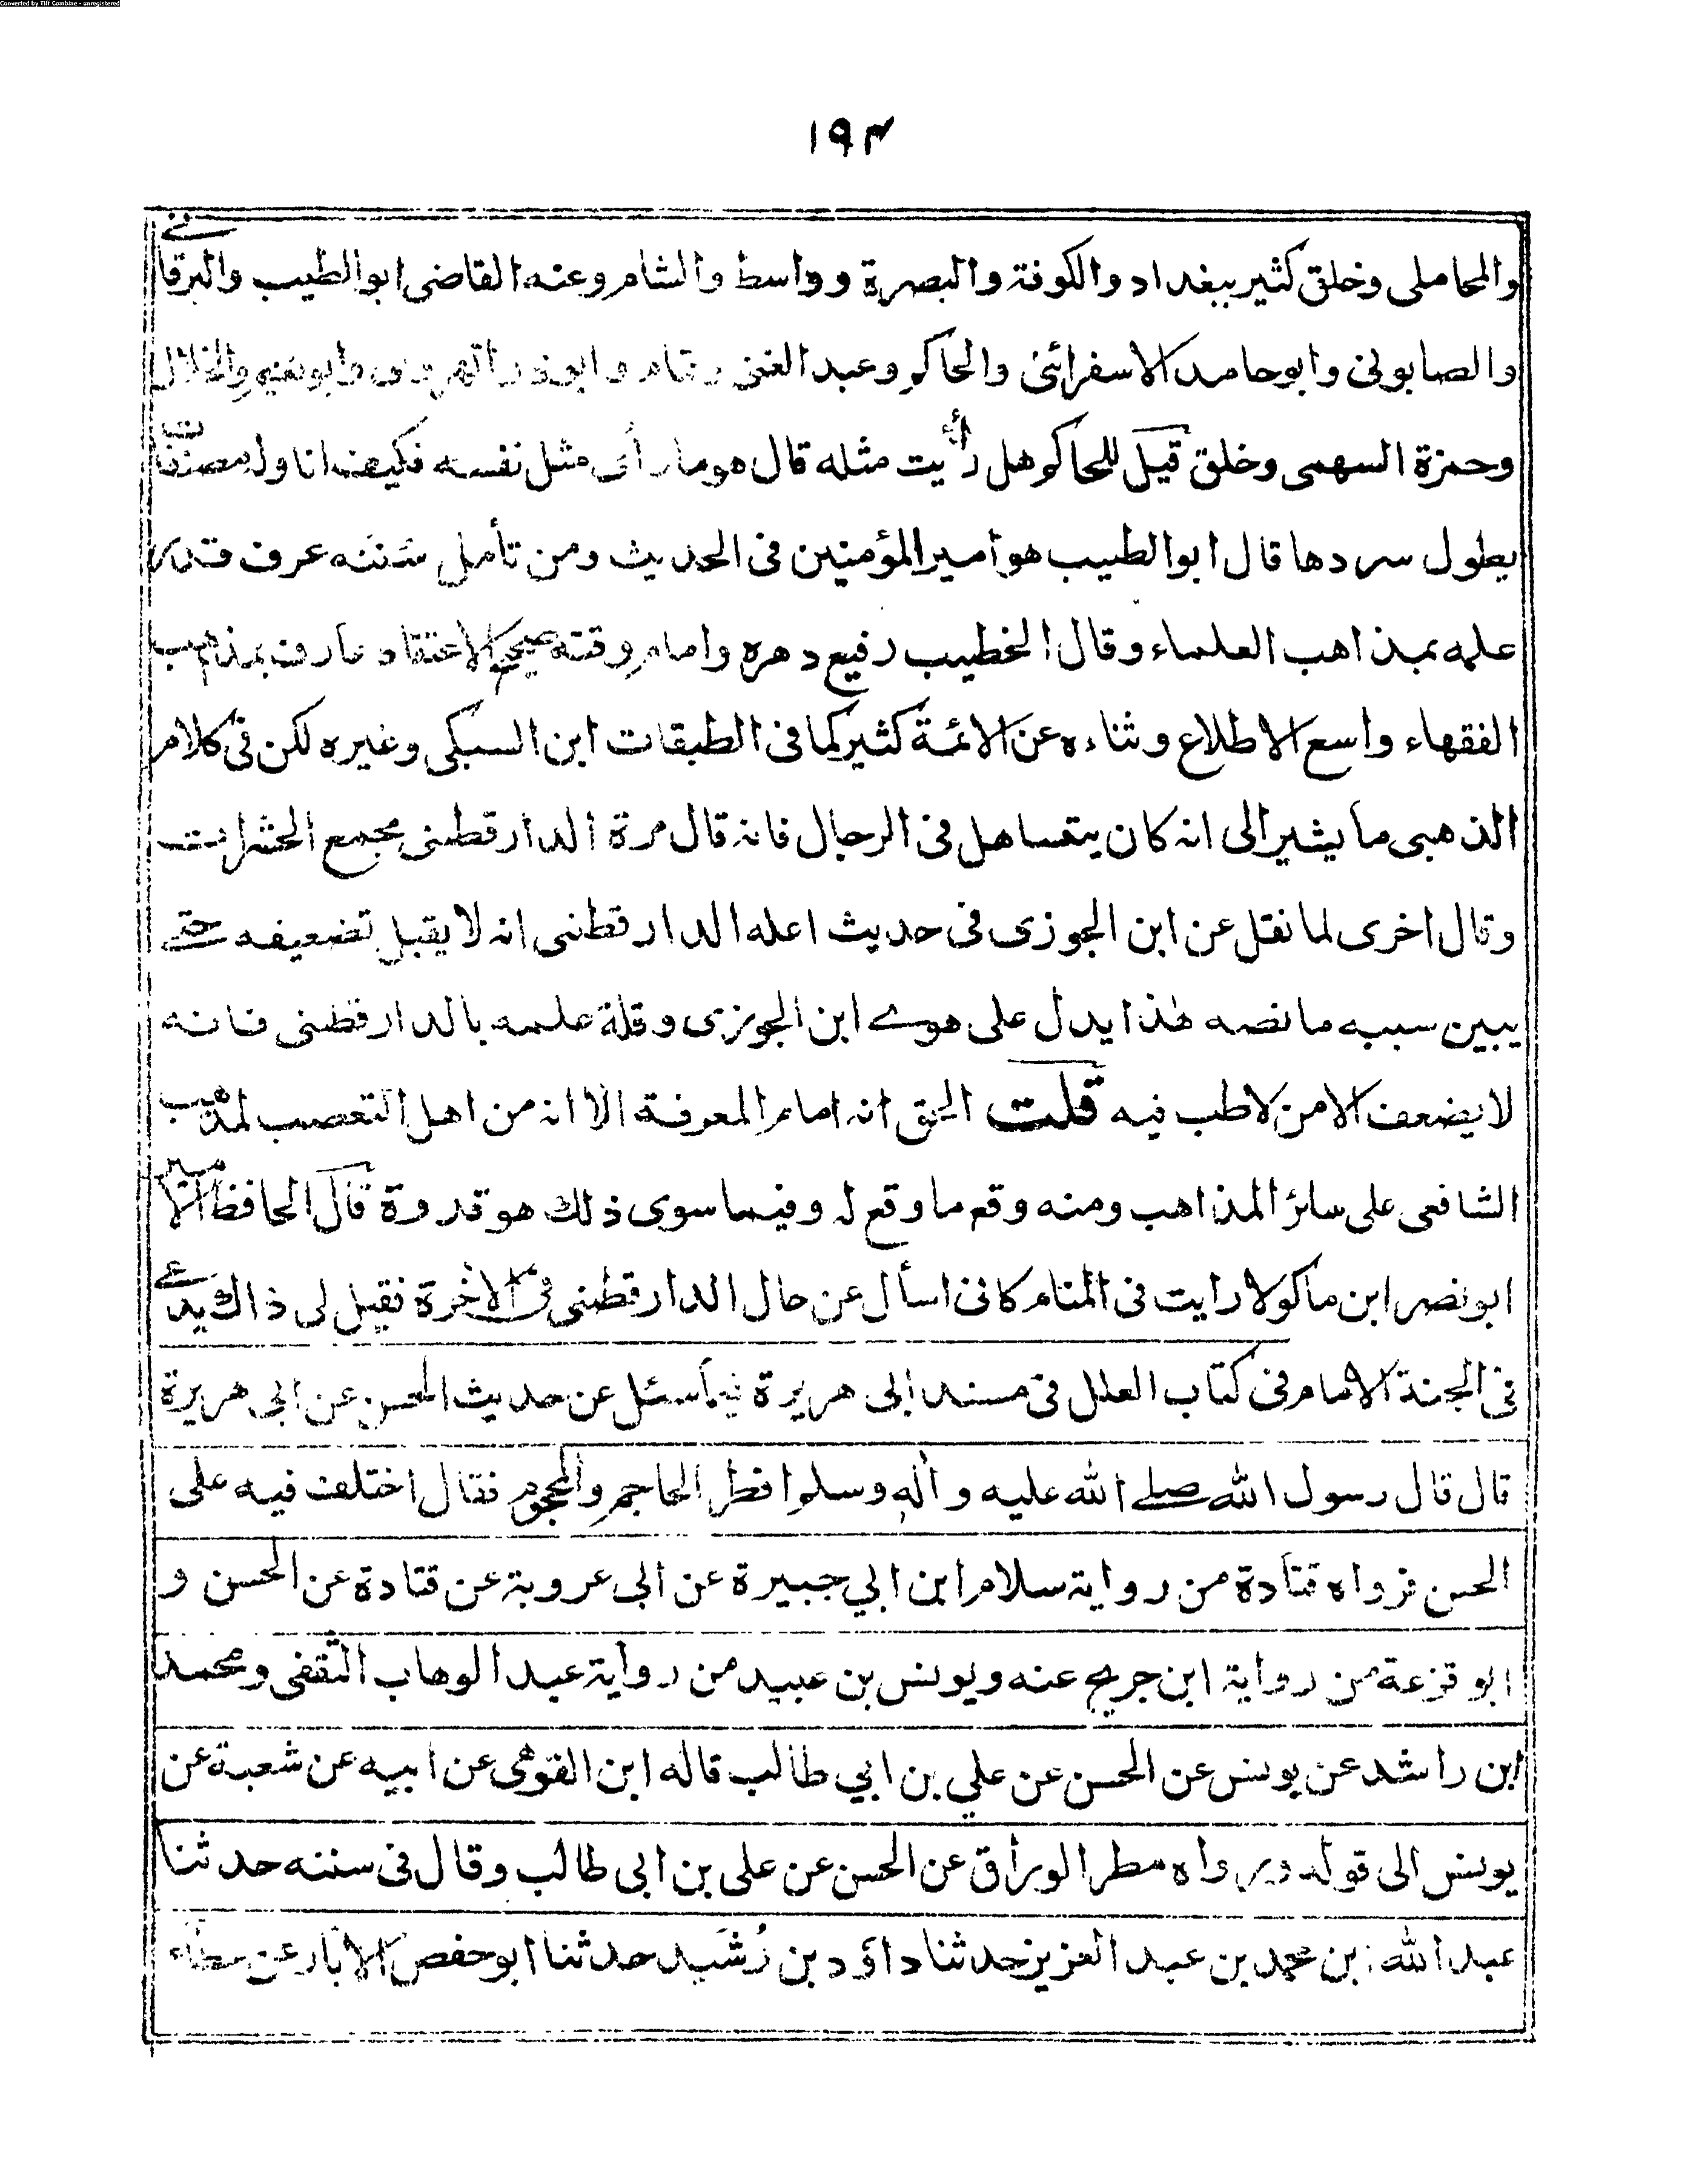 Converted by Tiff Combine - unregistered
١٩٣
والمحاملى وخلق كثير ببغداد والكوفة والبصرة وواسط والشام وعنه القاضى ابو الطيب والبرقانے
والصابونى وابو حامد الاسفرائنى والحاكم وعبد الغنى وتمام وابو ذر الهروى وابو نعيم والخلال
وحمزة السهمى وخلق قيل للحاكم هل رأيت مثله قال هو ما رأى مثل نفسه فكيف انا وله مصنفات
يطول سردها قال ابو الطيب هو امير المؤمنين فى الحديث ومن تأمل سننه عرف قدر
علمه بمذاهب العلماء وقال الخطيب رفيع دهره وامام وقته صحيح الاعتقاد عارف بمذاهب
الفقهاء واسع الاطلاع وثناءه عن الائمة كثير كما فى الطبقات ابن السبكى وغيره لكن فى كلام
الذهبى ما يشير الى انه كان يتساهل فى الرجال فانه قال مرة الدارقطنى مجمع الحشرات
وقال اخرى لما نقل عن ابن الجوزى فى حديث اعله الدارقطنى انه لا يقبل تضعيفه حتے
يبين سببه ما نصه هٰذا يدل على هوے ابن الجوزى وقلة علمه بالدارقطنى فانه
لا يضعف الا من لا طب فيه قلت الحق انه امام المعرفة الا انه من اهل التعصب لمذهب
الشافعى على سائر المذاهب ومنه وقع ما وقع له وفيما سوى ذلك هو قدوة قال الحافظ الامير
ابو نصر ابن ماكولا رايت فى المنام كانى اسأل عن حال الدارقطنى فى الاخرة فقيل لى ذاك يدعے
فى الجنة الامام فى كتاب العلل فى مسند ابى هريرة فيما سئل عن حديث الحسن عن ابى هريرة
قال قال رسول الله صلے الله عليه واٰله وسلم افطر الحاجم والمحجوم فقال اختلف فيه على
الحسن فرواه قتادة من رواية سلام ابن ابي جبيرة عن ابى عروبة عن قتادة عن الحسن و
ابو قزعة من رواية ابن جريج عنه ويونس بن عبيد من رواية عبد الوهاب الثقفى ومحمد
ابن راشد عن يونس عن الحسن عن علي بن ابي طالب قاله ابن القوهى عن ابيه عن شعبة عن
يونس الى قوله ورواه مطر الوراق عن الحسن عن على بن ابى طالب وقال فى سننه حدثنا
عبد الله بن محمد بن عبد العزيز حدثنا داؤد بن رُشَيد حدثنا ابو حفص الابار عن عطاء